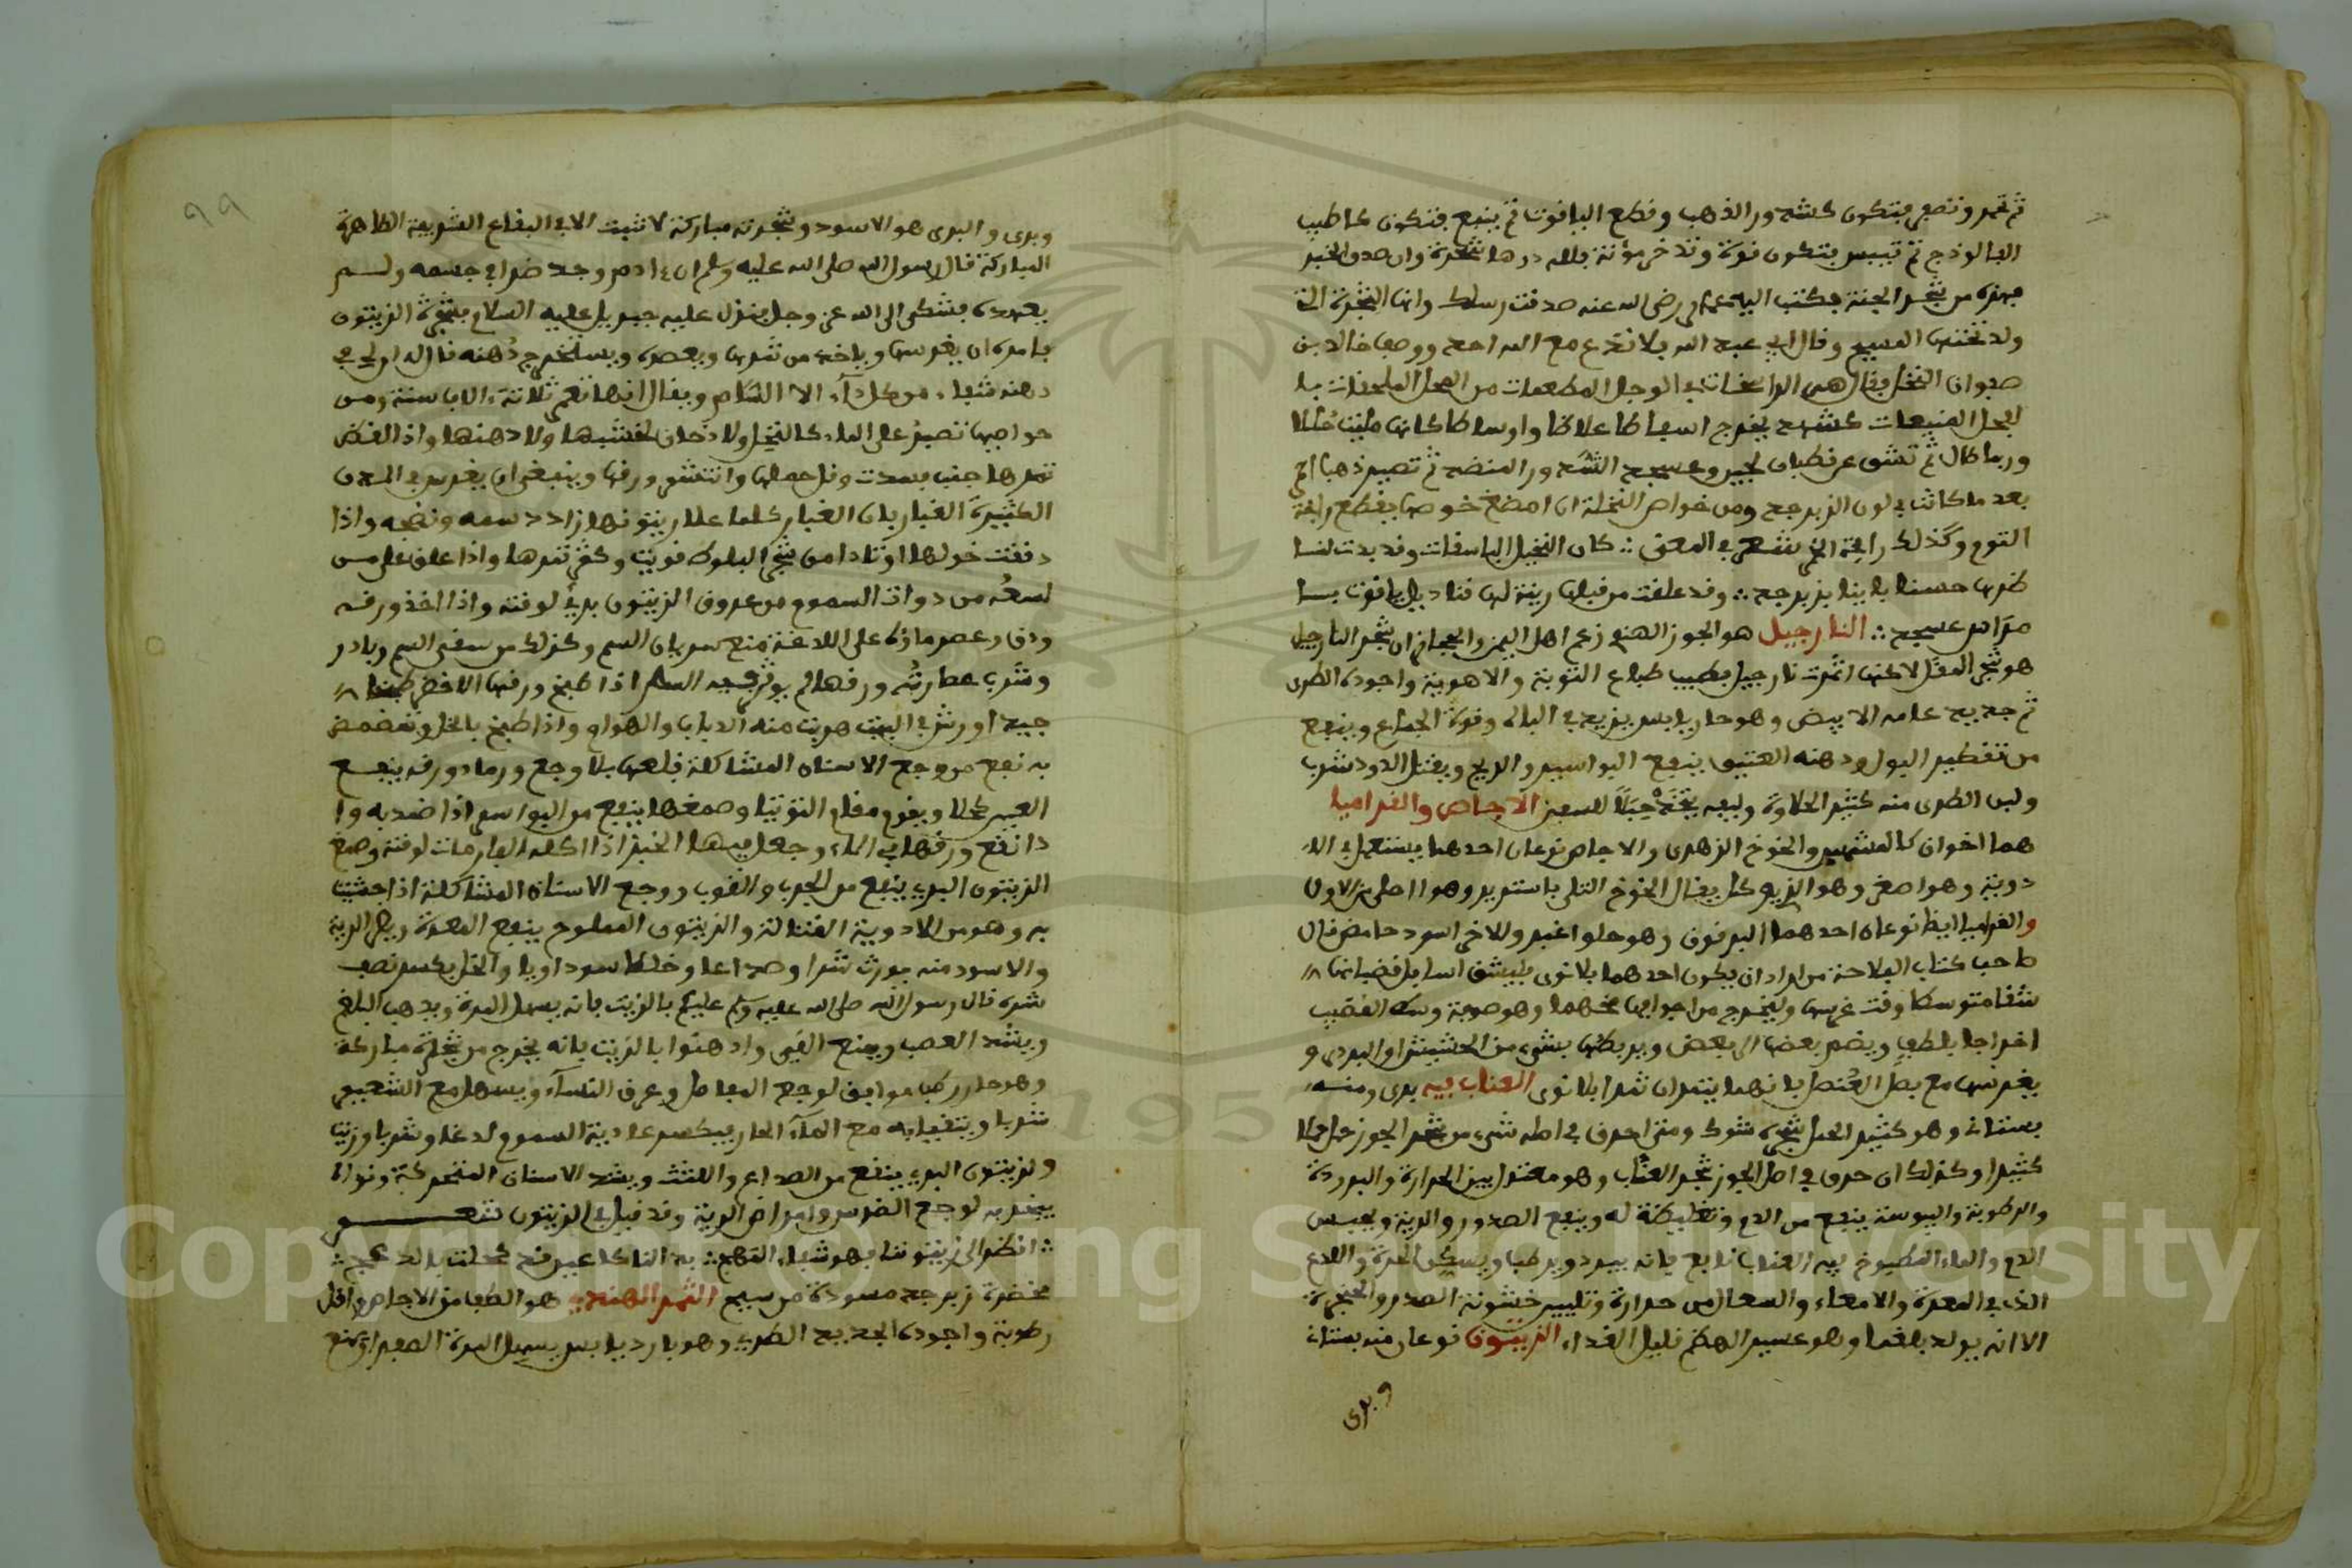 ثم تحمر وتصفر فتكون كشذور الذهب وقطع الياقوت ثم يينع فتكون كاطيب
الفالوذج ثم تيبس فتكون قوة وتدخر مؤنة فلله درها شجرة وان صدق الخبر
فهذه من شجر الجنة فكتب اليه عمر رضي الله عنه صدقت رسلك وانها الشجرة التي
ولد تحتها المسيح وقال اني عبد الله فلا تدع مع الله احد ووصف خالد بن
صفوان النخل فقال هن الراسخات في الوحل المطعمات في المحل الملحقات با
لفحل المنيعات كشهد يخرج اسفاطا غلاظا واوساطا كانها ملئت حللا
وربطا ثم تنشق عن قضبان لجين وعسجد الشذر المنضد ثم تصير ذهبا احمر
بعد ما كانت في لون الزبرجد ومن خواص النخلة ان مضغ خوصها يقطع رايحة
الثوم وكذلك رايحة الخمر شعر في المعنى ∴ كان النخيل الباسقات وقد بدت لنا
ظرها حسنا بابنا بزبرجد ∴ وقد علقت من قبلها زينة لها قناديل ياقوت با
مراس عسجد ∴ النارجيل هو الجوز الهندي زعم اهل اليمن والحجاز ان شجر النارجيل
هو شجر المقل لاكنها اثمرت نارجيل بطيب طباع التربة والاهوية واجوده الطري
ثم جديد عامه الابيض وهو حار يابس يزيد في الباه وقوة الجماع وينفع
من تقطير البول ودهنه العتيق ينفع البواسير والريح ويقتل الدود شرب
ولبن الطري منه كثير الحلاوة وليفه يتخذ حبالا للسفن الاجاص والقراصيا
هما اخوان كالمشمش والخوخ الزهري والاجاص نوعان احدهما يستعمل في الا
دوية وهو اصغر وهو الذي كان يقال الخوخ التلي باستدير وهو احلى من الاول
والقراصيا ايضا نوعان احدهما البرقوق وهو حلو اغبر والاخر اسود حامض قال
صاحب كتاب الفلاحة من اراد ان يكون احدهما بلا نوى فليشق اسافل قضبانها
شقا متوسطا وقت غرسها وليخرج من اجوافها مخها وهو صوفة وسط القضيب
اخراجا بلطف ويضم بعضها الى بعض ويربطها بشيء من الحشيش او البردي و
يغرسها مع بصل العنصل فانهما يثمران ثمرا بلا نوى العناب فيه بري ومنه
بستاني وهو كثير الحمل شجره شوك ومتى احرق في اصله شيء من شجر الجوز حمل حملا
كثيرا وكذلك ان حرق في اصل الجوز شجر العناب وهو معتدل بين الحرارة والبرودة
والرطوبة واليبوسة ينفع من الدم وتغليظه له وينفع الصدور والرية ويحبس
الدم والماء المطبوخ فيه العناب نافع فانه يبرد ويرطب ويسكن الحدة واللذع
الذي في المعدة والامعاء والسعال من حرارة وتليين خشونة الصدر والحنجرة
الا انه يولد بلغما وهو عسير الهضم قليل الغذاء الزيتون نوعان منه بستاني
وبري
٩٩
وبري والبري هو الاسود وشجرته مباركة لا تنبت الا في البقاع الشريفة الطاهرة
المباركة قال رسول الله صلى الله عليه وسلم ان ءادم وجد ضرا في جسمه ولم
يعهده فشكى الى الله عز وجل فنزل عليه جبريل عليه السلام بشجرة الزيتون
فامره ان يغرسها وياخذ من ثمرها ويعصره ويستخرج دهنه وقال له ان في
دهنه شفاء من كل داء الا السام ويقال انها تعمر ثلاثة ءالاف سنة ومن
خواصها تصبر على الماء كالنخل ولا دخان لخشبها ولا دهنها واذا لقط
ثمرها جنب فسدت وقل حملها وانتثر ورقها وينبغي ان يغرس في المدن
الكثيرة الغبار فان الغبار كلما علا زيتونها زاد دسمه ونضجه واذا
دققت حولها اوتادا من شجر البلوط قويت وكثر ثمرها واذا علق على من
لسعه من ذوات السموم من عروق الزيتون برئ لوقته واذا اخذ ورقه
ودق وعصر ماؤه على اللدغة منع سريان السم وكذلك من سقى السم وبادر
وشرب عصارة ورقها لم يوثر فيه السم اذا طبخ ورقها الاخضر طبخا
جيدا ورش في البيت هربت منه الذباب والهوام واذا طبخ بالخل وتمضمض
به نفع من وجع الاسنان المتشاكلة قلعها بلا وجع ورماد ورقه ينفع
العين كحلا ويقوم مقام التوتيا وصمغها ينفع من البواسير اذا ضمد به وا
ذا نقع ورقها في الماء وجعل فيها الخبز اذا اكله الفار مات لوقته وصمغ
الزيتون البري ينفع من الجرب والقوب ووجع الاسنان المتشاكلة اذا حشيت
به وهو من الادوية القتالة والزيتون المملوح ينفع المعدة ويضر الرية
والاسود منه يورث سهرا وصداعا وخلطا سوداويا والخل يكسر نصف
شره قال رسول الله صلى الله عليه وسلم عليكم بالزيت فانه يسهل المرة ويذهب البلغم
ويشد العصب ويمنع الغشي وادهنوا بالزيت فانه يخرج من شجرة مباركة
وهو حار رطب موافق لوجع المفاصل وعرق النساء ويسهل مع الشعير
شربا ويتقيا به مع الماء الحار فيكسر عادية السموم لدغا وشربا وزيت
والزيتون البري ينفع من الصداع واللثة ويشد الاسنان المتحركة ونواه
يبخر به لوجع الضرس وامراض الرية وقد قيل في الزيتون شعر
∴ انظر الى زيتوننا فهو شفاء المهج ∴ بدا لنا كاعين قد كحلت بالدعج ∴
مخضرة زبرجد مسودة من سبج الثمر الهندي هو الطف من الاجاص واقل
رطوبة واجوده الجديد الطري وهو بارد يابس يسهل المرة الصفراء ويمنع
Copyright © King Saud University
1957